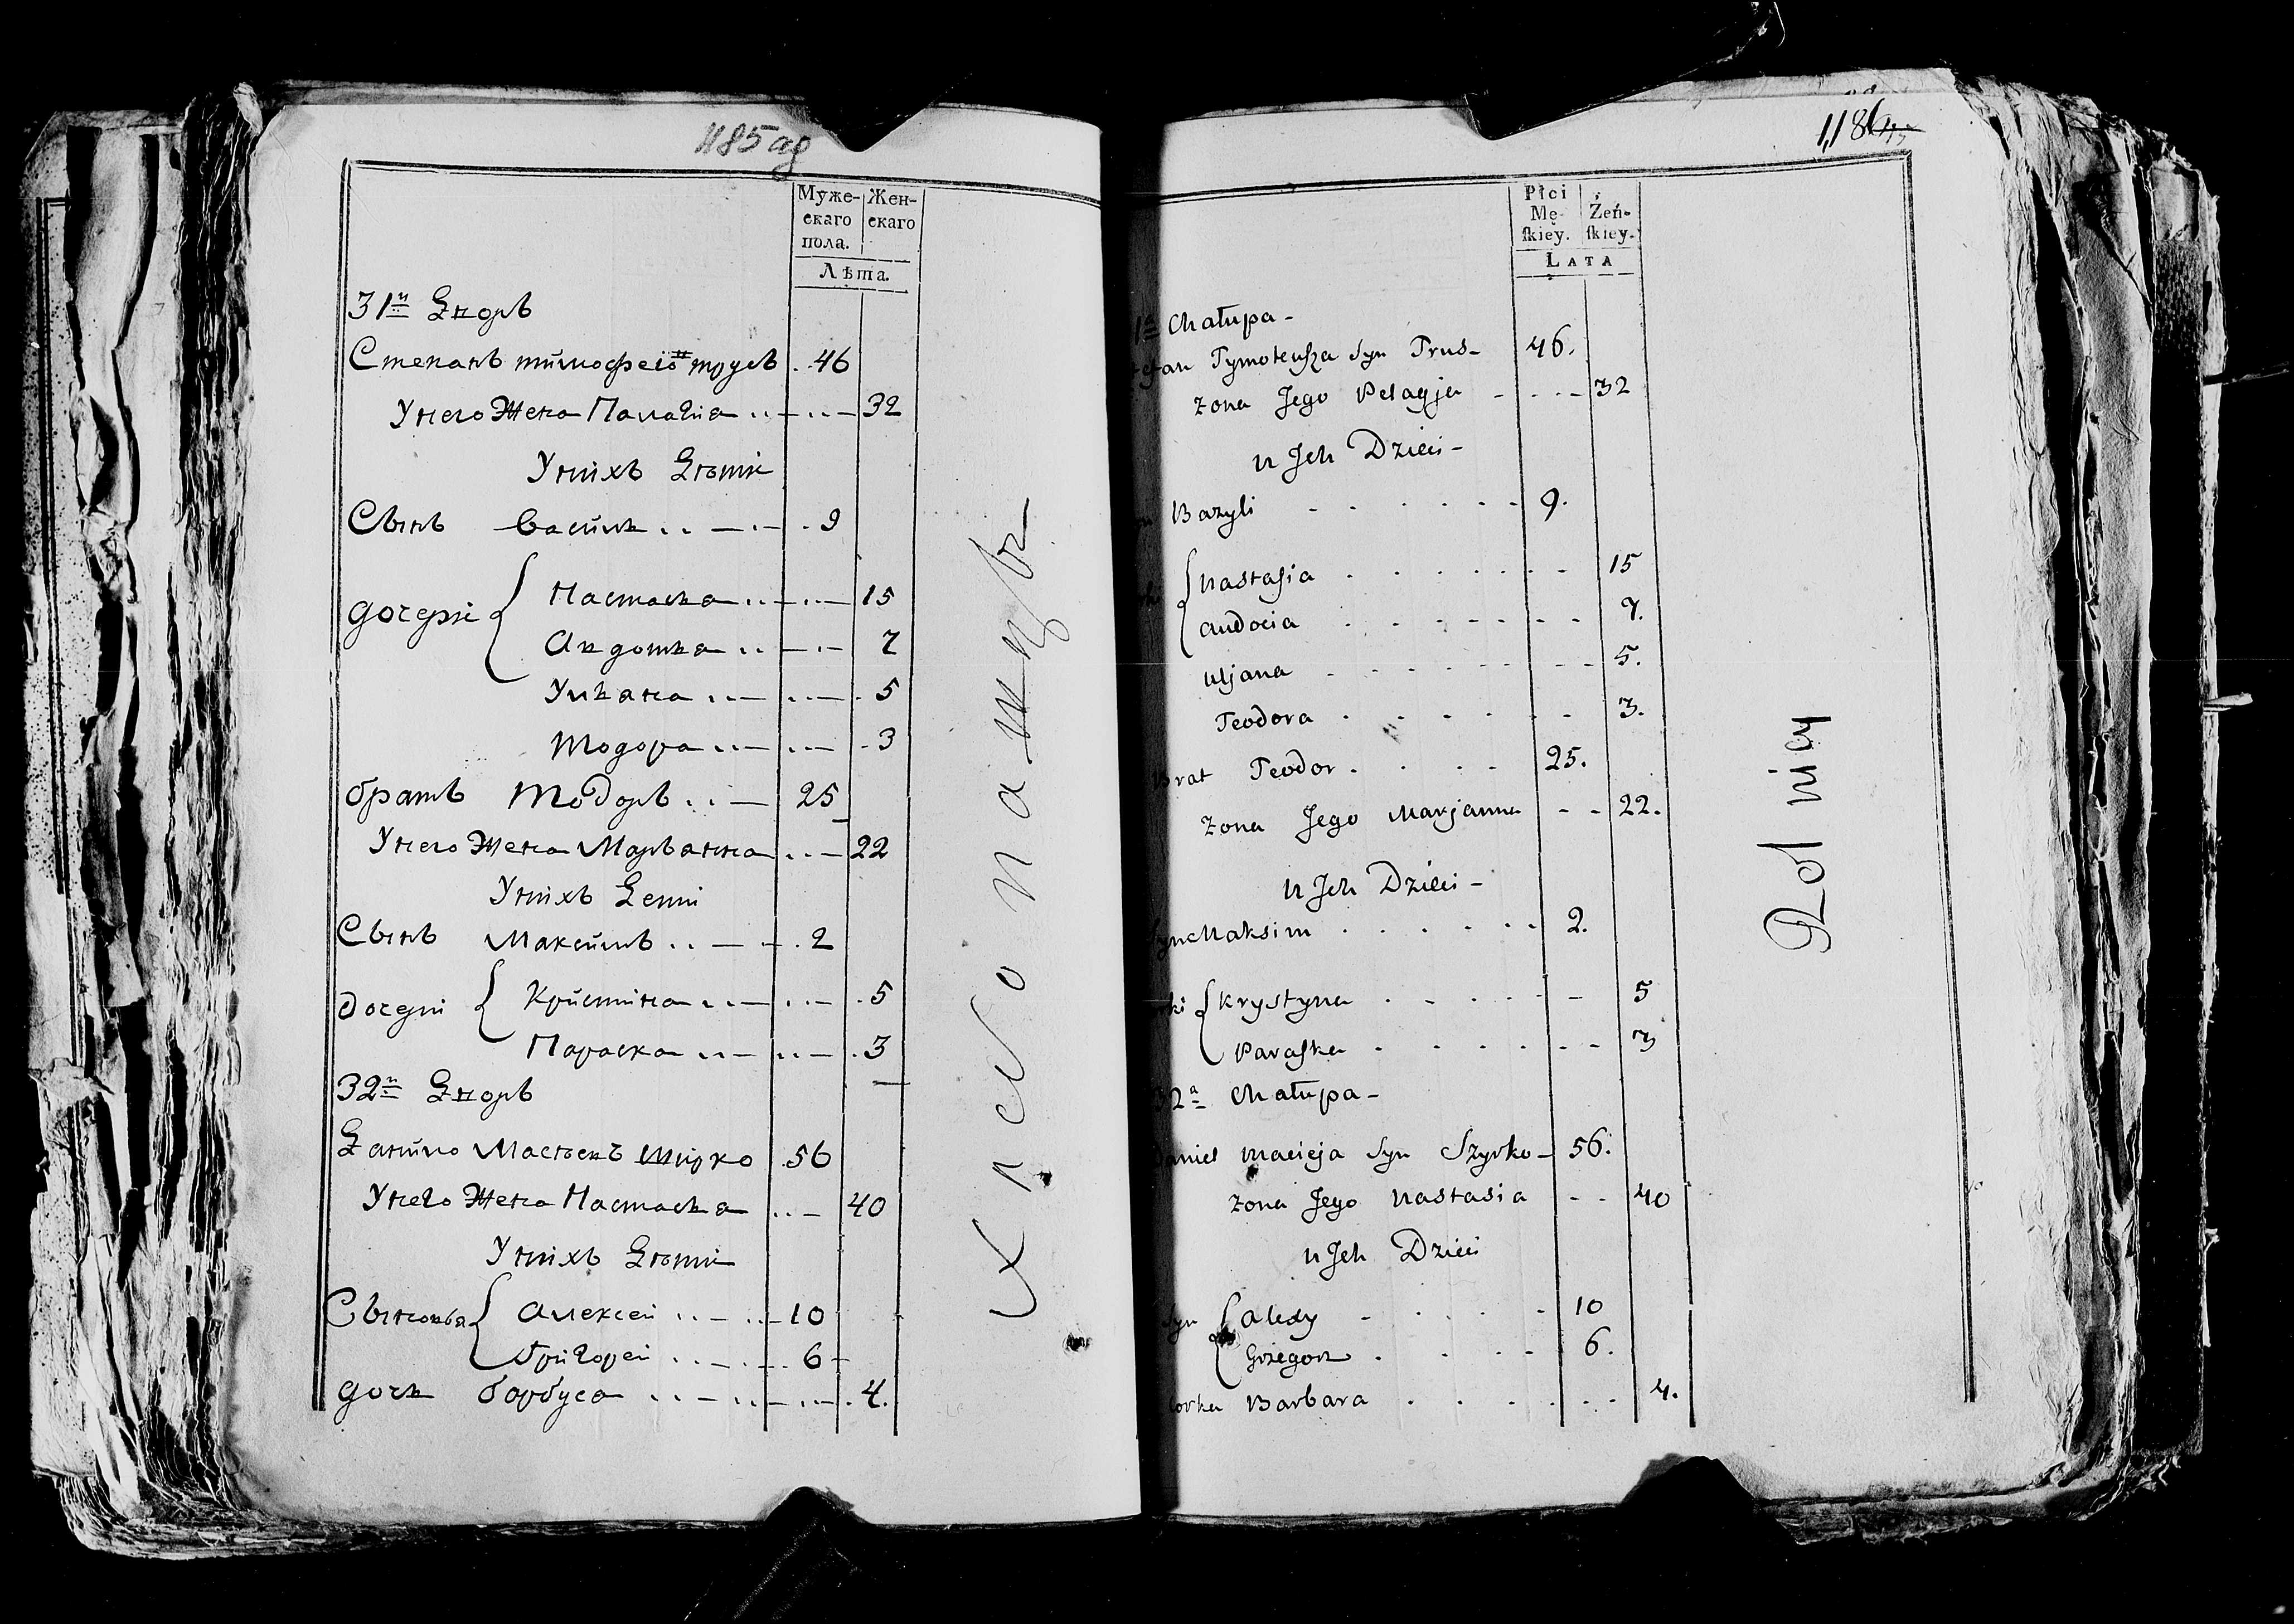 1185 ад
Муже-
скаго
пола.
Жен-
скаго
Лѣта.
31й Дворъ
Степанъ тимофеiв трусъ 46
У него Жена Палагiя 32
У нихъ Дѣти
Сынъ Василь 9
дочери Настасья 15
Авдотья 7
Ульяна 5
Тодора 3
братъ Тодоръ 25
У него Жена Марьяна 22
У нихъ Дети
Сынъ Максимъ 2
дочери Кристина 5
Параска 3
32й Дворъ
Данило Масѣевъ Ширко 56
У него Жена Настасья 40
У нихъ Дѣти
Сыновья Алексей 10
Григорей 6
дочь барбуса 4.
Хлебопашцы
1186
Płci
Mę-
skiey.
Żeń-
skiey.
LATA
1a Chałupa -
Tymoteusza Syn Trus - 46.
Zona Jego Pelagja 32
u Jch Dzieci -
Bazyli 9.
Nastasia 15
Audocia 7.
Uljana 5.
Teodora 3.
Brat Teodor 25.
Zona Jego Marjanna 22.
u Jch Dzieci -
Syn Maksim 2.
Krystyna 5
Paraska 3
32a Chałupa -
Daniel Macieja Syn Szyrko - 56.
Zona Jego Nastasia 40
u Jch Dzieci
Syn Alexy 10
Grzegorz 6.
Corka Barbara 4.
Rolnicy